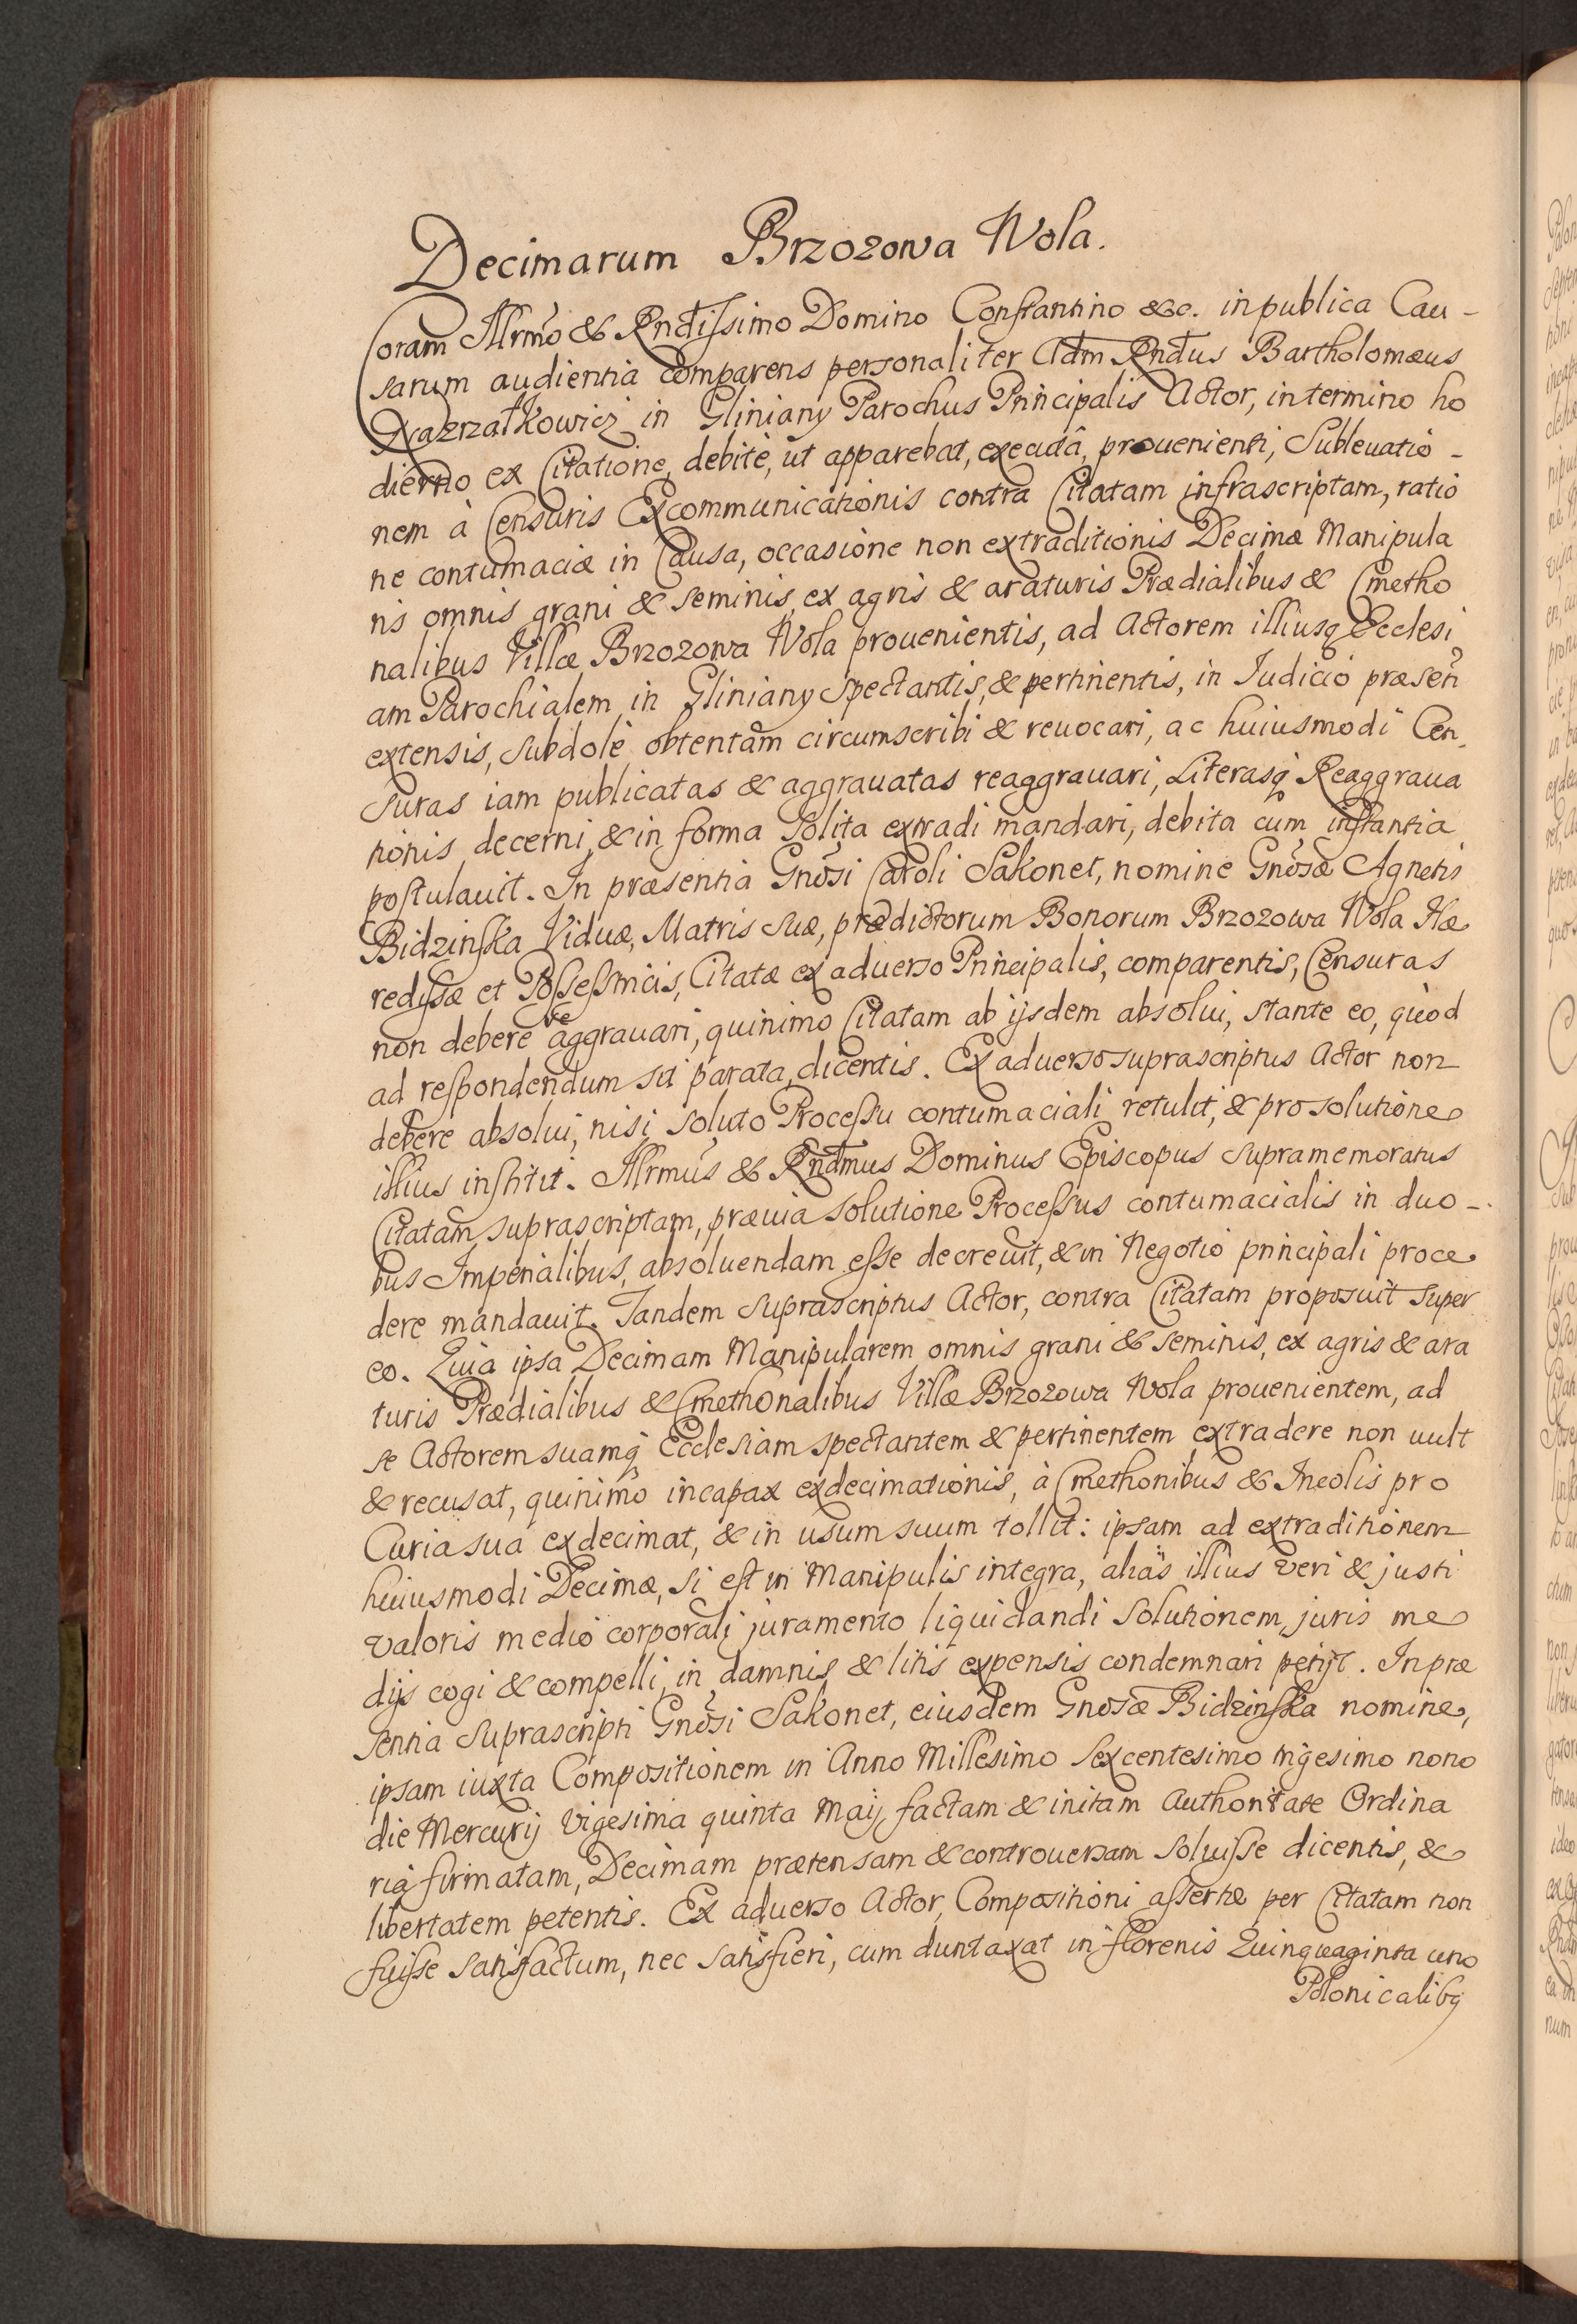 Decimarum Brzozowa Wola.
Coram Illrmo & Rndissimo Domino Constantino &c. in publica Cau-
sarum audientia comparens personaliter Adm Rndus Bartholomæus
in Gliniany Parochus Principalis Actor, in termino ho
dierno ex Citatione, debitè, ut apparebat, executâ, prouenienti, Subleuatio-
nem à Censuris Excommunicationis contra Citatam infrascriptam, ratio
ne contumaciæ in Causa, occasione non extraditionis Decimæ Manipula
ris omnis grani & seminis, ex agris & araturis Prædialibus & Cmetho
nalibus Villæ Brzozowa Wola prouenientis, ad Actorem illiusq Ecclesi
am Parochialem in Gliniany spectantis, & pertinentis, in Iudicio præsen
extensis, subdolè obtentam circumscribi & reuocari, ac huiusmodi Cen,
suras iam publicatas & aggrauatas reaggrauari, Literasq Reaggraua
tionis decerni, & in forma solita extradi mandari, debita cum instantia
postulauit. In præsentia Gnosi Caroli Sakonet, nomine Gnosæ Agnetis
Bidzinska Viduæ, Matris suæ, prædictorum Bonorum Brzozowa Wola Hæ
redissæ et Possestricis, Citatæ ex aduerso Principalis, comparentis, Censuras
non debere aggrauari, quinimo Citatam ab ijsdem absolui, stante eo, quòd
ad respondendum sit parata, dicentis. Ex aduerso suprascriptus Actor non
debere absolui, nisi soluto Processu contumaciali retulit, & pro solutione
illius institit. Illrmus & Rndmus Dominus Episcopus supramemoratus
Citatam suprascriptam, præuia solutione Processus contumacialis in duo-
bus Imperialibus, absoluendam esse decreuit, & in Negotio principali proce
dere mandauit. Tandem suprascriptus Actor, contra Citatam proposuit super
eo. Quia ipsa Decimam Manipularem omnis grani & seminis, ex agris & ara
turis Prædialibus & Cmethonalibus Villæ Brzozowa Wola prouenientem, ad
se Actorem suamq Ecclesiam spectantem & pertinentem extradere non uult
& recusat, quinimo incapax exdecimationis, à Cmethonibus & Incolis pro
Curia sua exdecimat, & in usum suum tollit: ipsam ad extraditionem
huiusmodi Decimæ, si est in Manipulis integra, aliàs illius veri & justi
valoris medio corporali juramento liquidandi solutionem, juris me
dijs cogi & compelli, in damnis & litis expensis condemnari petijt. In præ
sentia suprascripti Gnosi Sakonet, eiusdem Gnosæ Bidzinska nomine,
ipsam iuxta Compositionem in Anno Millesimo Sexcentesimo trigesimo nono
die Mercurij Vigesima quinta Maij factam & initam Authoritate Ordina
ria firmatam, Decimam prætensam & controuersam soluisse dicentis, &
libertatem petentis. Ex aduerso Actor, Compositioni assertæ per Citatam non
fuisse satisfactum, nec satisfieri, cum duntaxat in florenis Quinquaginta uno
Polonicalibq